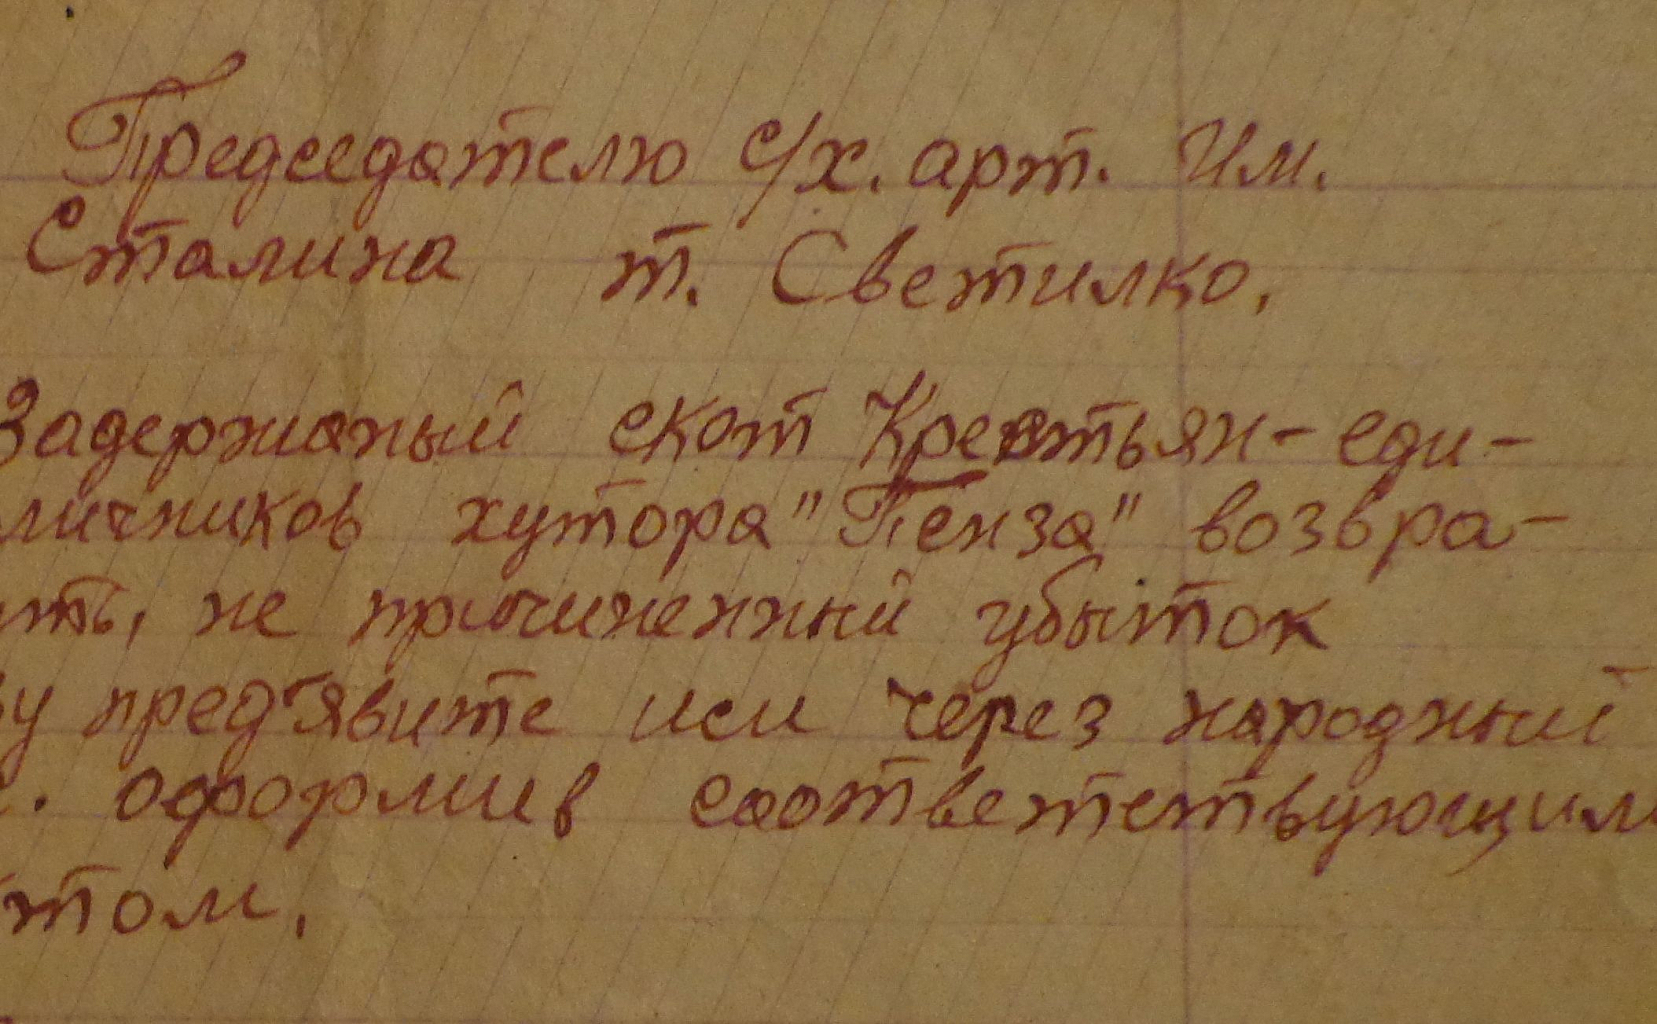 Председателю с/х. арт. Им.
Сталина т. Светилко.
Задержаный скот Крестьян-еди-
личников хутора "Пенза" возвра-
ить, не причиненный убыток
у пред'явите иси через народный
с. оформив соответствующим
том.